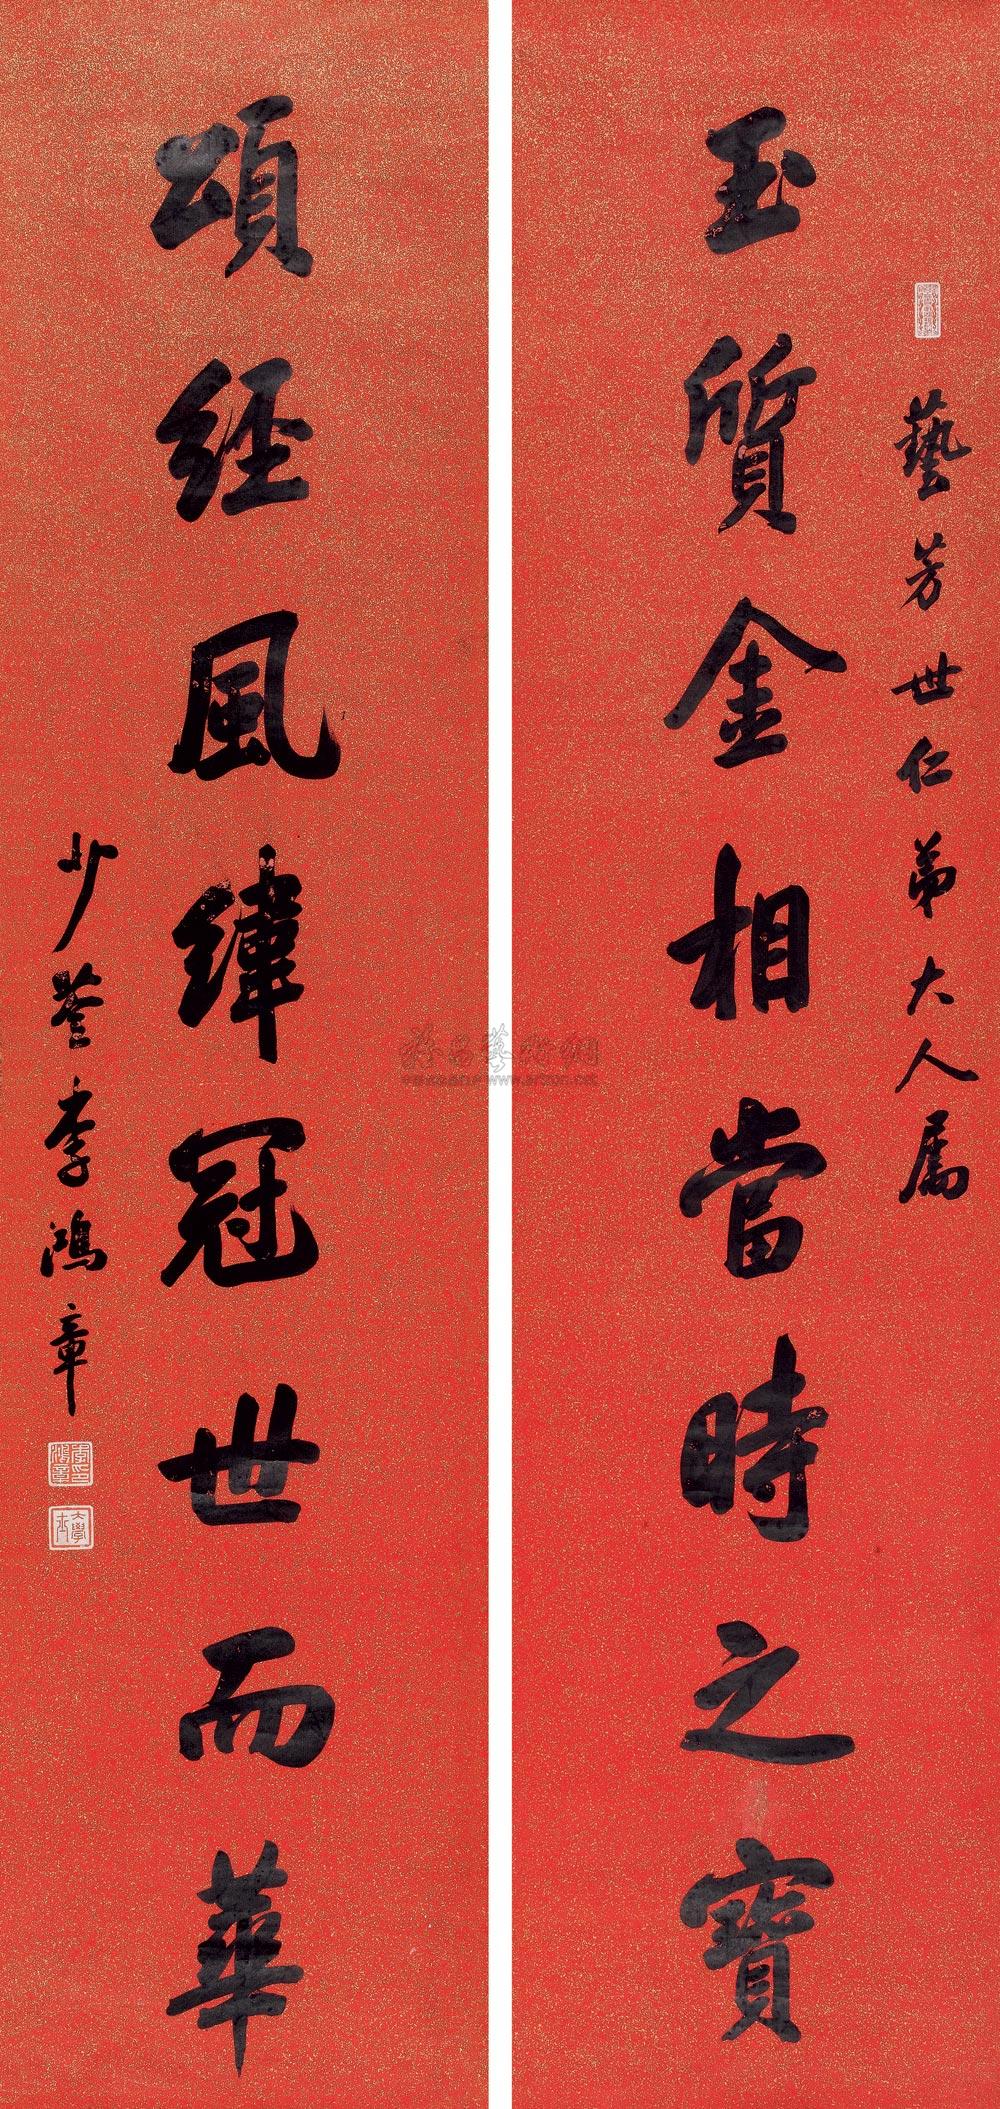 藝芳世仁弟大人屬
玉質金相當時之寶
頌經風緯冠世而華
少荃李鴻章